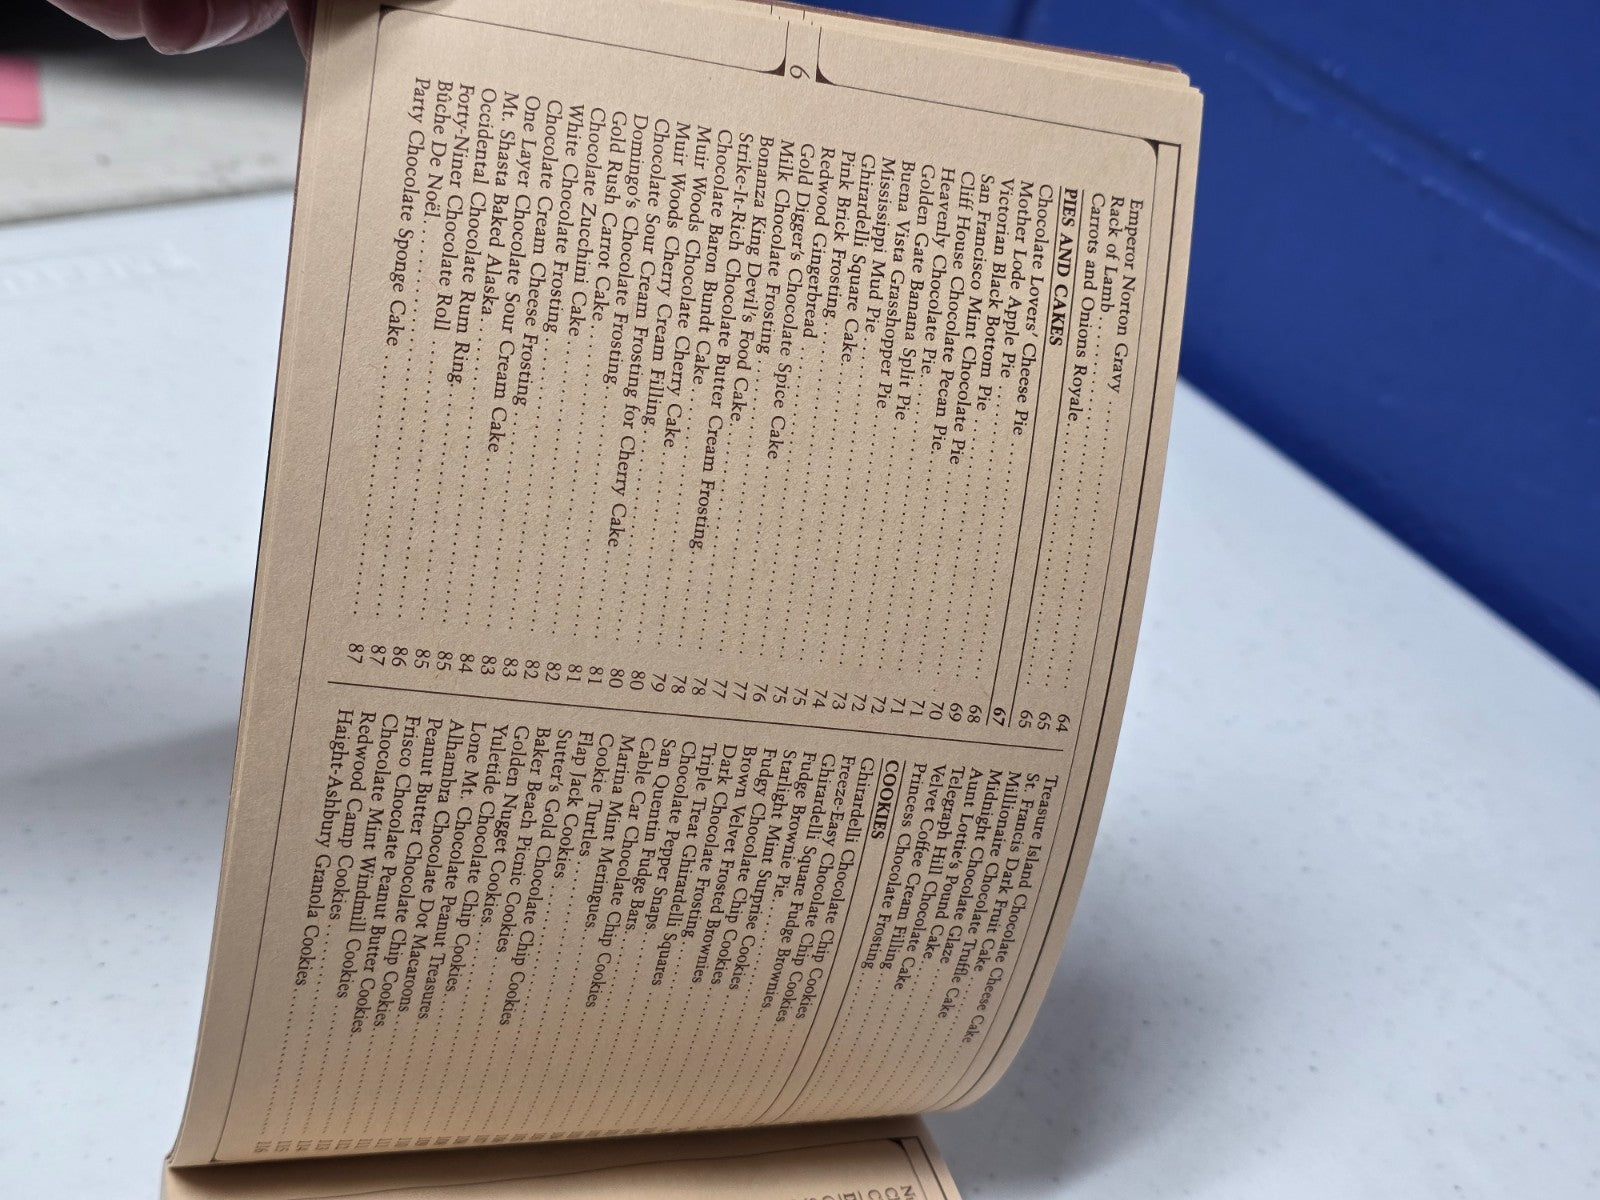 6
Emperor Norton Gravy 64
Rack of Lamb 65
Carrots and Onions Royale 65
PIES AND CAKES 67
Chocolate Lovers' Cheese Pie 68
Mother Lode Apple Pie 69
Victorian Black Bottom Pie 70
San Francisco Mint Chocolate Pie 71
Cliff House Chocolate Pecan Pie 71
Heavenly Chocolate Pie 72
Golden Gate Banana Split Pie 72
Buena Vista Grasshopper Pie 73
Mississippi Mud Pie 74
Ghirardelli Square Cake 75
Pink Brick Frosting 75
Redwood Gingerbread 76
Gold Digger's Chocolate Spice Cake 77
Milk Chocolate Frosting 77
Bonanza King Devil's Food Cake 78
Strike-It-Rich Chocolate Butter Cream Frosting 78
Chocolate Baron Bundt Cake 79
Muir Woods Chocolate Cherry Cake 80
Muir Woods Cherry Cream Filling 80
Chocolate Sour Cream Frosting for Cherry Cake 81
Domingo's Chocolate Frosting 81
Gold Rush Carrot Cake 82
Chocolate Zucchini Cake 82
White Chocolate Frosting 83
Chocolate Cream Cheese Frosting 83
One Layer Chocolate Sour Cream Cake 84
Mt. Shasta Baked Alaska 85
Occidental Chocolate Rum Ring 85
Forty-Niner Chocolate Roll 86
Bûche De Noël 87
Party Chocolate Sponge Cake 87
Treasure Island Chocolate Cheese Cake
St. Francis Dark Fruit Cake
Millionaire Chocolate Truffle Cake
Midnight Chocolate Glaze
Aunt Lottie's Pound Cake
Telegraph Hill Chocolate Cake
Velvet Coffee Cream Filling
Princess Chocolate Frosting
COOKIES
Ghirardelli Chocolate Chip Cookies
Freeze-Easy Chocolate Chip Cookies
Ghirardelli Square Fudge Brownies
Fudge Brownie Pie
Starlight Mint Surprise Cookies
Fudgy Chocolate Chip Cookies
Brown Velvet Frosted Brownies
Dark Chocolate Frosting
Triple Treat Ghirardelli Squares
Chocolate Pepper Snaps
San Quentin Fudge Bars
Cable Car Chocolate Chip Cookies
Marina Mint Meringues
Cookie Turtles
Flap Jack Cookies
Sutter's Gold Chocolate Chip Cookies
Baker Beach Picnic Cookies
Golden Nugget Cookies
Yuletide Chocolate Chip Cookies
Lone Mt. Chocolate Peanut Treasures
Alhambra Chocolate Dot Macaroons
Peanut Butter Chocolate Chip Cookies
Frisco Chocolate Peanut Butter Cookies
Chocolate Mint Windmill Cookies
Redwood Camp Cookies
Haight-Ashbury Granola Cookies